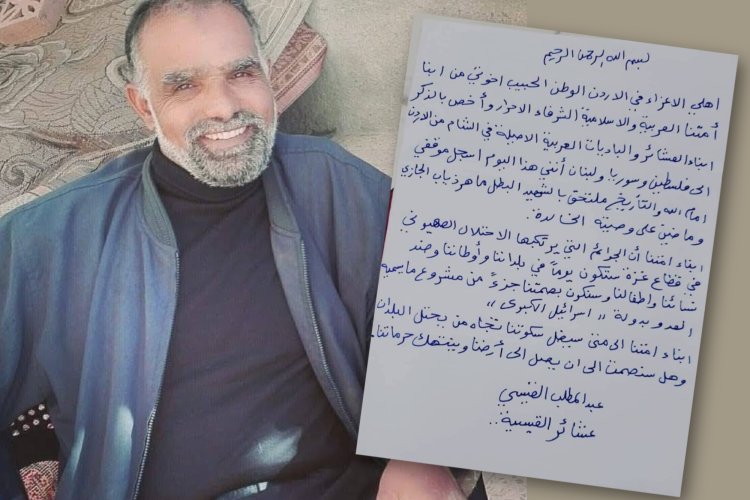 بسم الله الرحمن الرحيم
اهلي الاعزاء في الاردن الوطن الحبيب اخوتي من ابنا
أمتنا العربية والاسلامية الشرفاء الاحرار وأخص بالذكر
ابناء العشائر والباديات العربية الاصيلة في الشام من الاردن
الى فلسطين وسوريا ولبنان أنني هذا اليوم اسجل موقفي
امام الله والتأريخ ملتحق بالشهيد البطل ماهر ذياب الجازي
وماضين على وصيته الخالدة.
ابناء امتنا أن الجرائم التي يرتكبها الاحتلال الصهيوني
في قطاع غزة ستكون يوماً في بلداننا وأوطاننا وضد
نسائنا واطفالنا وستكون بصمتنا جزءً من مشروع ما يسميه
العدو بدولة "اسرائيل الكبرى"
ابناء امتنا الى متى سيضل سكوتنا تجاه من يحتل البلدان
وهل سنصمت الى ان يصل الى أرضنا وينتهك حرماتنا.
عبدالمطلب القيسي
عشائر القيسية..